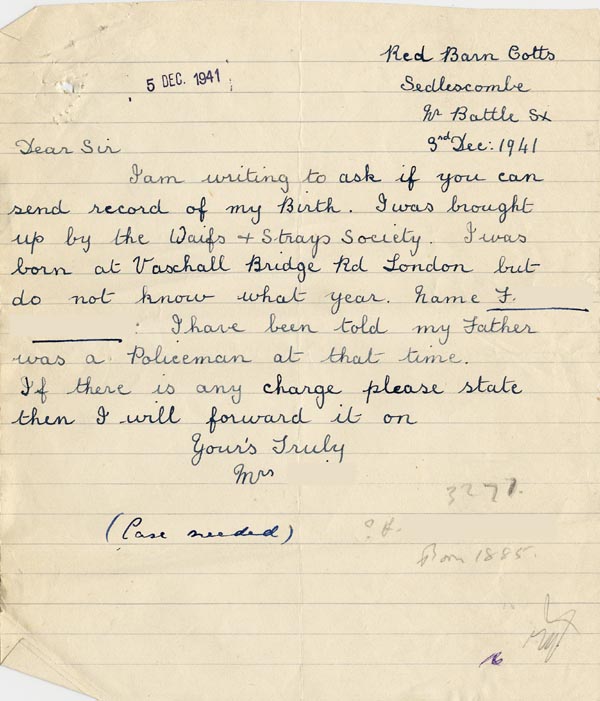 Red Barn Cotts
5 DEC. 1941
Sedlescombe
Nr Battle Sx
3rd Dec: 1941
Dear Sir
I am writing to ask if you can
send record of my Birth. I was brought
up by the Waifs + Strays Society. I was
born at Vaxchall Bridge Rd London but
do not know what year. Name F.
: I have been told my Father
was a Policeman at that time.
If there is any charge please state
then I will forward it on
Your's Truly
Mrs
3277.
(Case needed)
Born 1885.